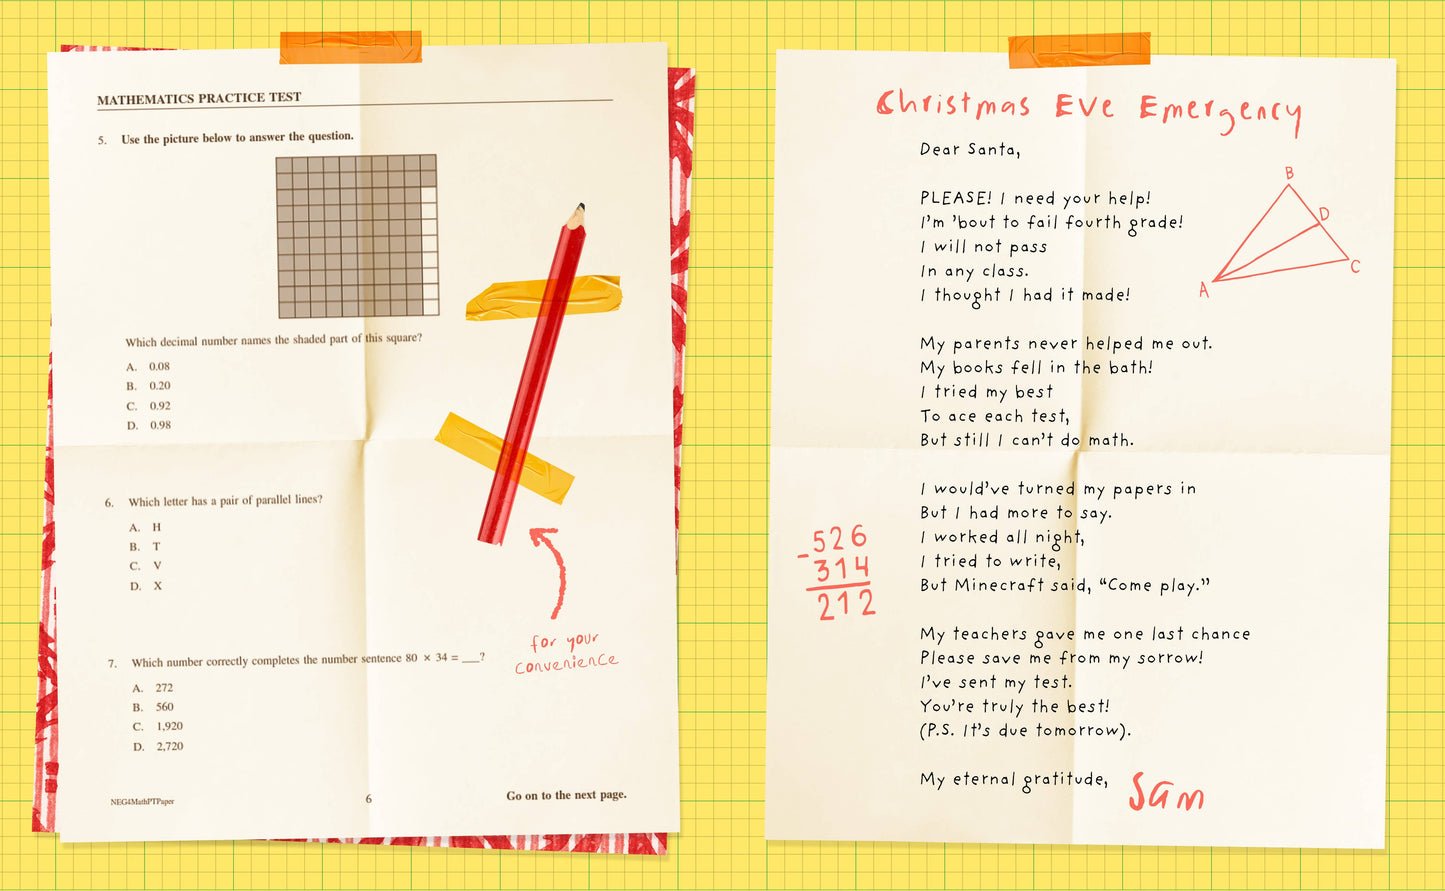 MATHEMATICS PRACTICE TEST
5. Use the picture below to answer the question.
Which decimal number names the shaded part of this square?
A. 0.08
B. 0.20
C. 0.92
D. 0.98
6. Which letter has a pair of parallel lines?
A. H
B. T
C. V
D. X
7. Which number correctly completes the number sentence 80 × 34 = ___?
A. 272
B. 560
C. 1,920
D. 2,720
for your
convenience
NEG4MathPTPaper
6
Go on to the next page.
Christmas Eve Emergency
Dear Santa,
PLEASE! I need your help!
I'm 'bout to fail fourth grade!
I will not pass
In any class.
I thought I had it made!
B
D
C
A
My parents never helped me out.
My books fell in the bath!
I tried my best
To ace each test,
But still I can't do math.
I would've turned my papers in
But I had more to say.
I worked all night,
I tried to write,
But Minecraft said, “Come play.”
526
-314
212
My teachers gave me one last chance
Please save me from my sorrow!
I've sent my test.
You're truly the best!
(P.S. It's due tomorrow).
My eternal gratitude,
Sam